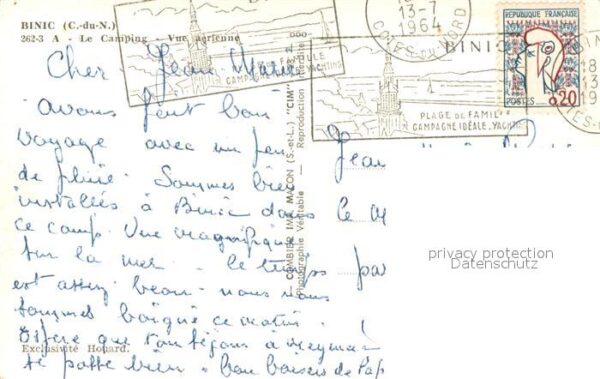 BINIC (C.-du-N.)
262-3 A - Le Camping - Vue aérienne
13-7
1964
COTES-DU-NORD
BINIC
PLAGE DE FAMILLE
CAMPAGNE IDÉALE. YACHTING
REPUBLIQUE FRANÇAISE
POSTES
0,20
18
13
Cher Jean Marie
avons fait bon
voyage avec un peu
de pluie. Sommes bien
installés à Binic dans
ce camp. Vue magnifique
sur la mer. le temps
est assez beau - nous nous
sommes baigné ce matin.
Espère que ton séjour à
se passe bien - bon baisers de Pap
Jean
le
par
Exclusivité Houard.
— COMBIER IMP. MACON (S.-et-L.) "CIM"
Photographie Véritable — Reproduction Interdite
privacy protection
Datenschutz